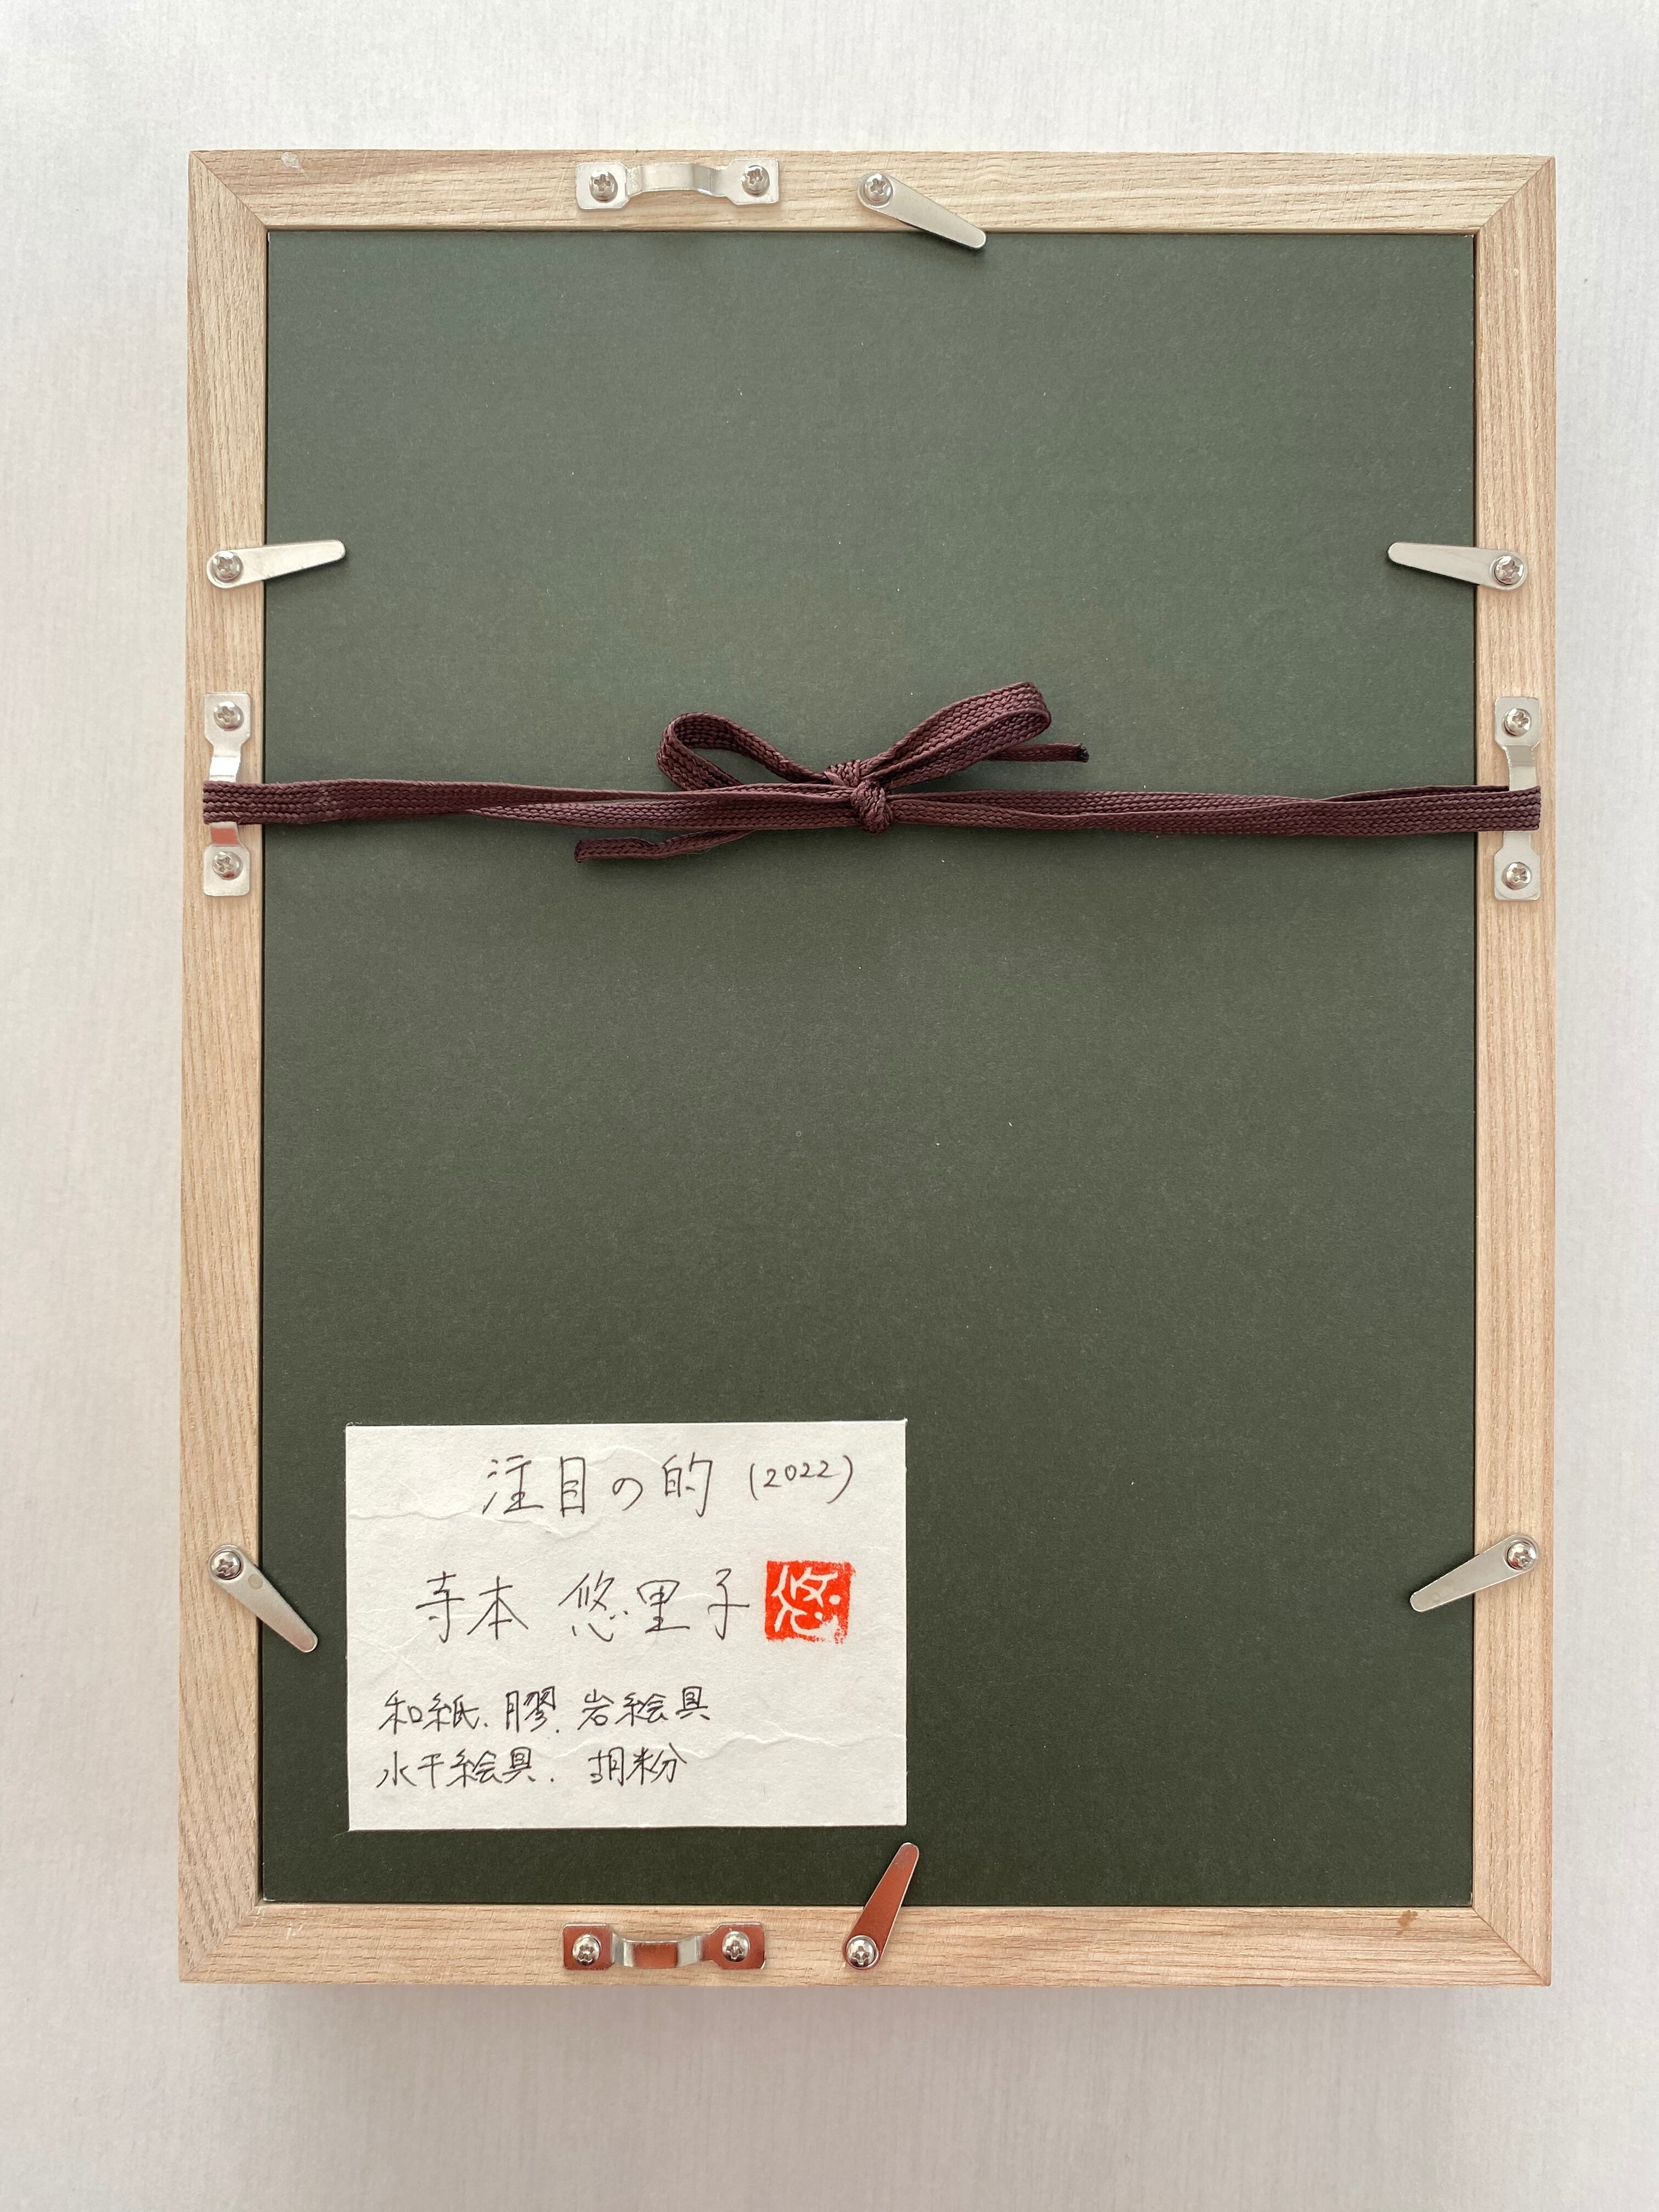 注目の的 (2022)
寺本 悠里子 悠
和紙、膠、岩絵具
水干絵具、胡粉